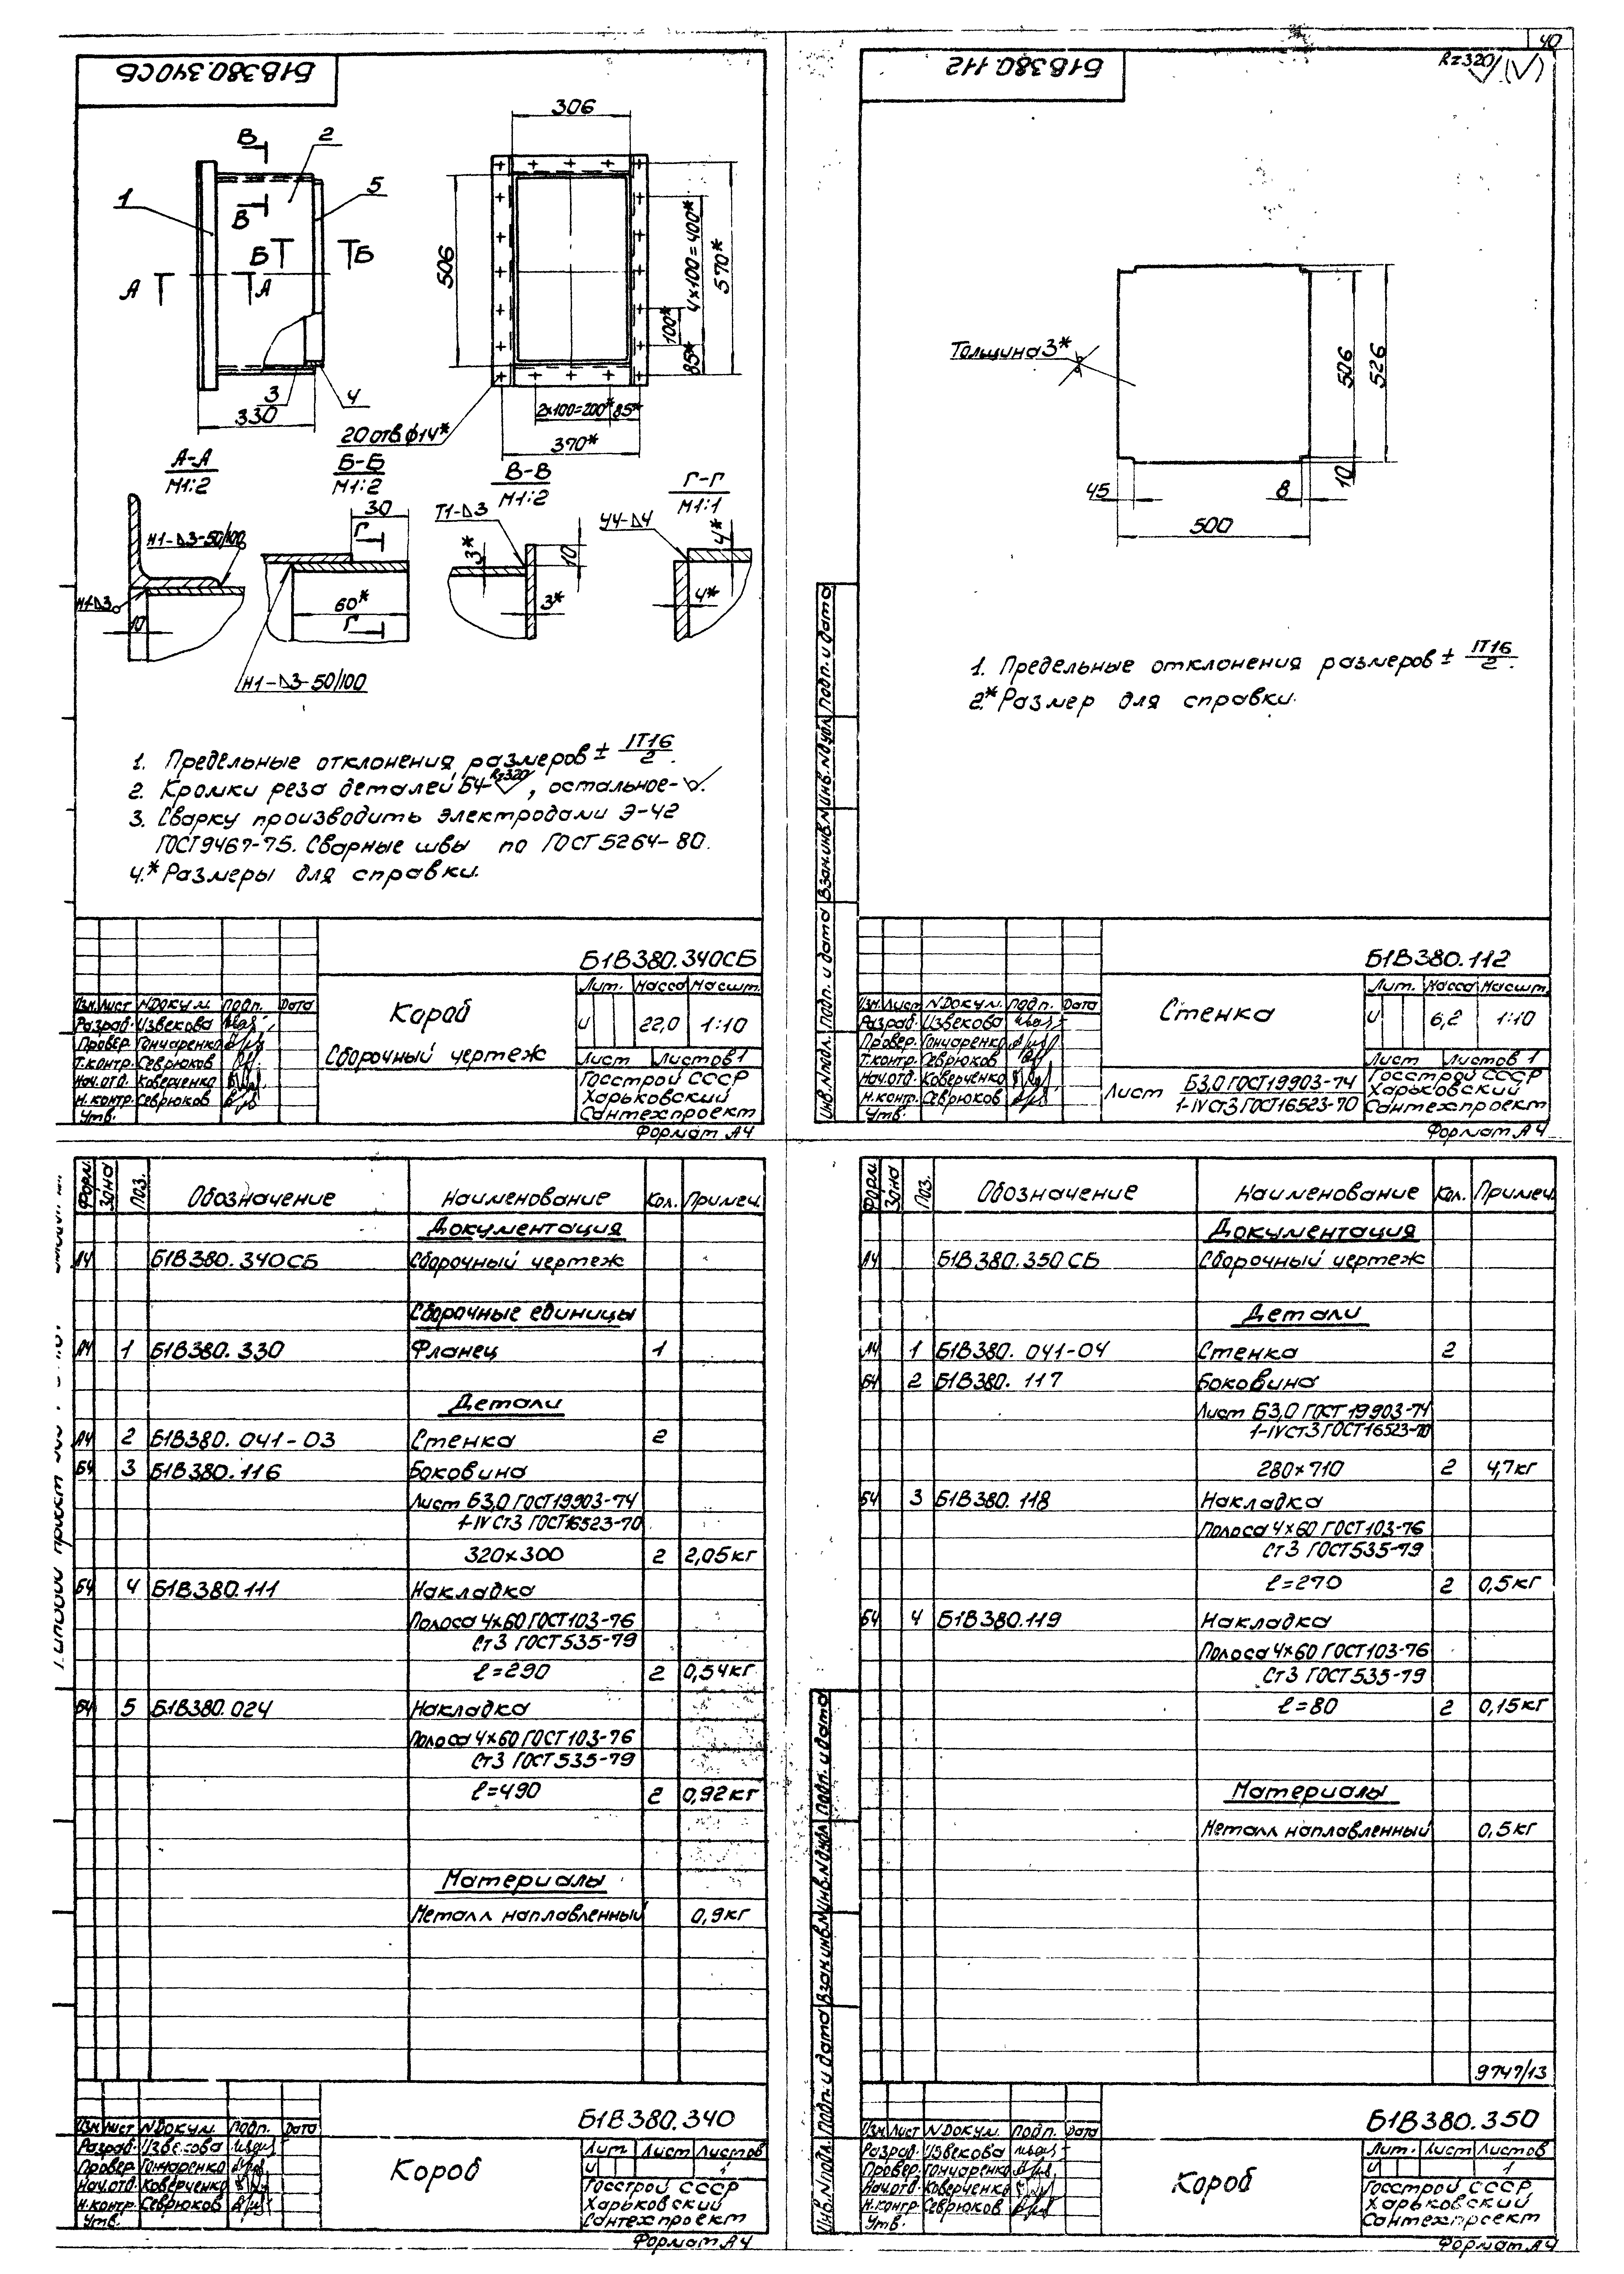 40
Б1В380.340СБ
306
В
2
1
5
В
Б
Б
А
А
506
4×100=400*
570*
100*
85*
3
4
330
2×100=200*
85*
20 отв. ϕ14*
370*
А-А
М1:2
Б-Б
М1:2
В-В
М1:2
Г-Г
М1:1
30
Г
Т1-△3
У4-△4
Н1-△3-50/100
3*
10
4*
Н1-△3
10
60*
Г
3*
4*
Н1-△3-50/100
1. Предельные отклонения размеров ± IT16/2.
2. Кромки реза деталей Б4 Rz320, остальное-
3. Сварку производить электродами Э-42
ГОСТ9467-75. Сварные швы по ГОСТ5264-80.
4.* Размеры для справки.
Б1В380.340СБ
Изм. Лист №Докум. Подп. Дата
Разраб. Извекова
Провер. Гончаренко
Т.контр. Севрюков
Нач.отд. Коверченко
Н.контр. Севрюков
Утв.
Короб
Сборочный чертеж
Лит. Масса Масшт.
И 22,0 1:10
Лист Листов 1
Госстрой СССР
Харьковский
Сантехпроект
Формат А4
Б1В380.112
Rz320
Толщина 3*
506
526
10
45
8
500
1. Предельные отклонения размеров ± IT16/2.
2.* Размер для справки.
Инв.№подл. Подп. и дата Взам.инв.№ Инв.№дубл. Подп. и дата
Б1В380.112
Изм. Лист №Докум. Подп. Дата
Разраб. Извекова
Провер. Гончаренко
Т.контр. Севрюков
Нач.отд. Коверченко
Н.контр. Севрюков
Утв.
Стенка
Лит. Масса Масшт.
И 6,2 1:10
Лист Листов 1
Лист Б3,0 ГОСТ19903-74
1-IVСт3 ГОСТ16523-70
Госстрой СССР
Харьковский
Сантехпроект
Формат А4
Форм. Зона Поз. Обозначение Наименование Кол. Примеч.
Документация
А4 Б1В380.340СБ Сборочный чертеж
Сборочные единицы
А4 1 Б1В380.330 Фланец 1
Детали
А4 2 Б1В380.041-03 Стенка 2
Б4 3 Б1В380.116 Боковина
Лист Б3,0 ГОСТ19903-74
1-IV Ст3 ГОСТ16523-70
320×300 2 2,05кг
Б4 4 Б1В380.111 Накладка
Полоса 4×60 ГОСТ103-76
Ст3 ГОСТ535-79
ℓ=290 2 0,54кг
Б4 5 Б1В380.024 Накладка
Полоса 4×60 ГОСТ103-76
Ст3 ГОСТ535-79
ℓ=490 2 0,92кг
Материалы
Металл наплавленный 0,9кг
Б1В380.340
Изм. Лист №Докум. Подп. Дата
Разраб. Извекова
Провер. Гончаренко
Нач.отд. Коверченко
Н.контр. Севрюков
Утв.
Короб
Лит. Лист Листов
И 1
Госстрой СССР
Харьковский
Сантехпроект
Формат А4
Форм. Зона Поз. Обозначение Наименование Кол. Примеч.
Документация
А4 Б1В380.350СБ Сборочный чертеж
Детали
А4 1 Б1В380.041-04 Стенка 2
Б4 2 Б1В380.117 Боковина
Лист Б3,0 ГОСТ19903-74
1-IVСт3 ГОСТ16523-70
280×710 2 4,7кг
Б4 3 Б1В380.118 Накладка
Полоса 4×60 ГОСТ103-76
Ст3 ГОСТ535-79
ℓ=270 2 0,5кг
Б4 4 Б1В380.119 Накладка
Полоса 4×60 ГОСТ103-76
Ст3 ГОСТ535-79
ℓ=80 2 0,15кг
Материалы
Металл наплавленный 0,5кг
9747/13
Инв.№подл. Подп. и дата Взам.инв.№ Инв.№дубл. Подп. и дата
Б1В380.350
Изм. Лист №Докум. Подп. Дата
Разраб. Извекова
Провер. Гончаренко
Нач.отд. Коверченко
Н.контр. Севрюков
Утв.
Короб
Лит. Лист Листов
И 1
Госстрой СССР
Харьковский
Сантехпроект
Формат А4